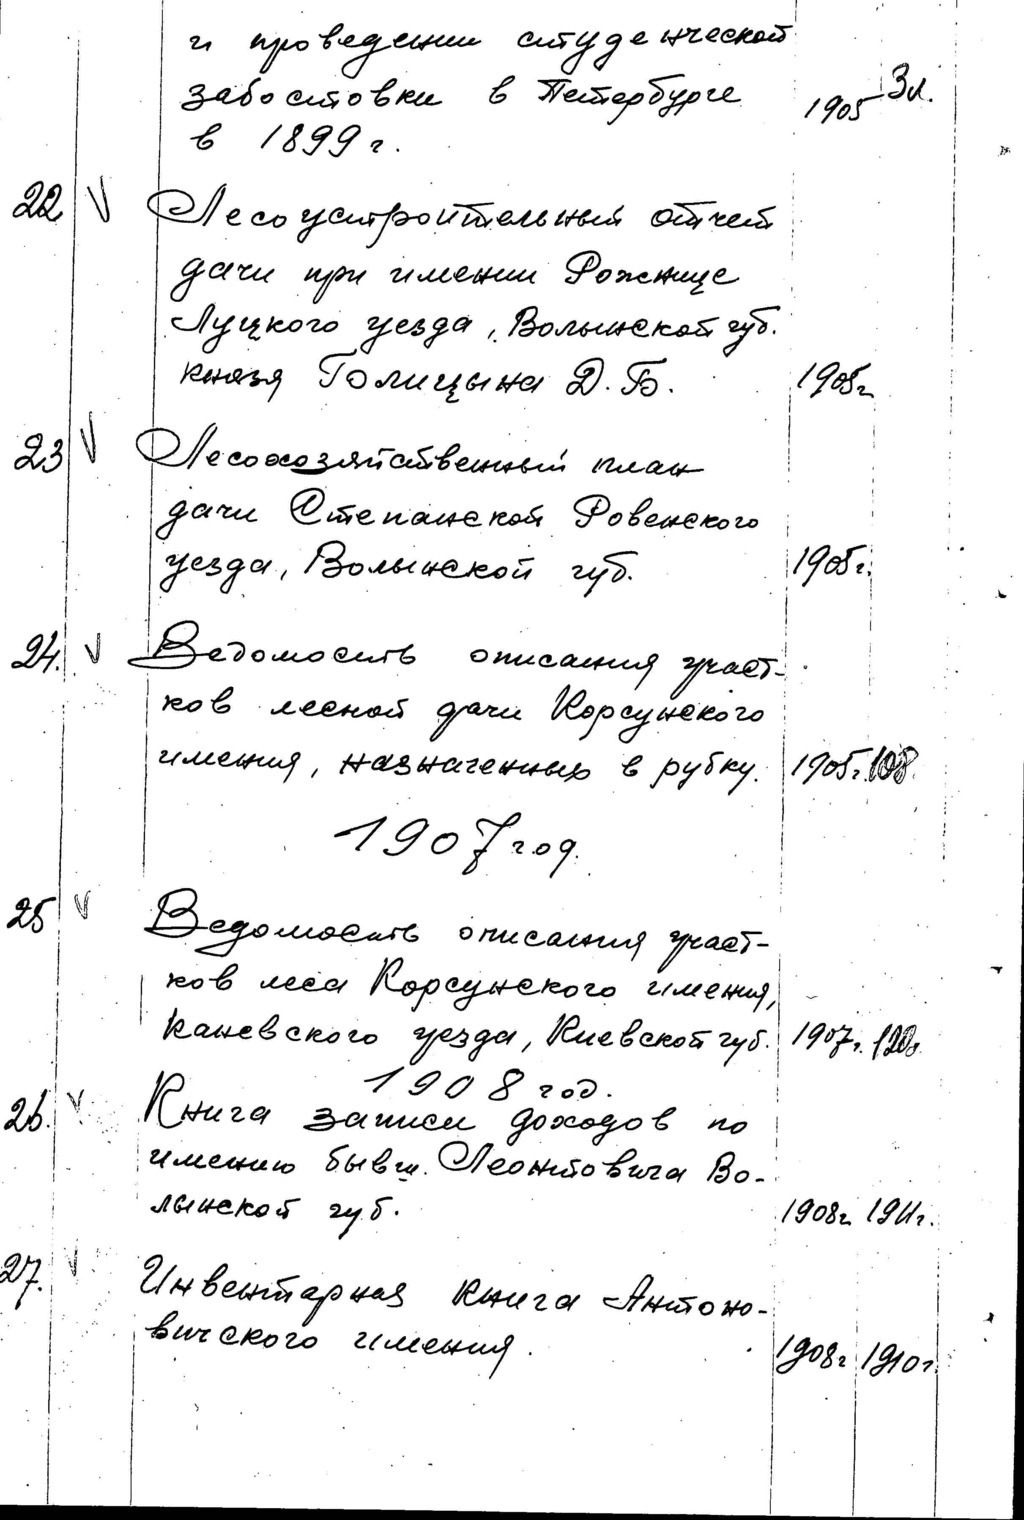 и проведении студенческой
забостовки в Петербурге 1905 3л.
в 1899 г.
22 V Лесоустроительный отчет
дачи при имении Рожище
Луцкого уезда, Волынской губ.
князя Голицына Д. Б. 1905г
23 V Лесохозяйственный план
дачи Степанской Ровенского
уезда, Волынской губ. 1905г.
24. V Ведомость описания участ-
ков лесной дачи Корсунского
имения, назначенных в рубку. 1905г. 108
1907 год.
25 V Ведомость описания участ-
ков леса Корсунского имения,
Каневского уезда, Киевской губ. 1907г. 120
1908 год.
26. V Книга записи доходов по
имению бывш. Леонтовича Во-
лынской губ. 1908г 1911г.
27. V Инвентарная книга Антоно-
вичского имения. 1908г 1910г